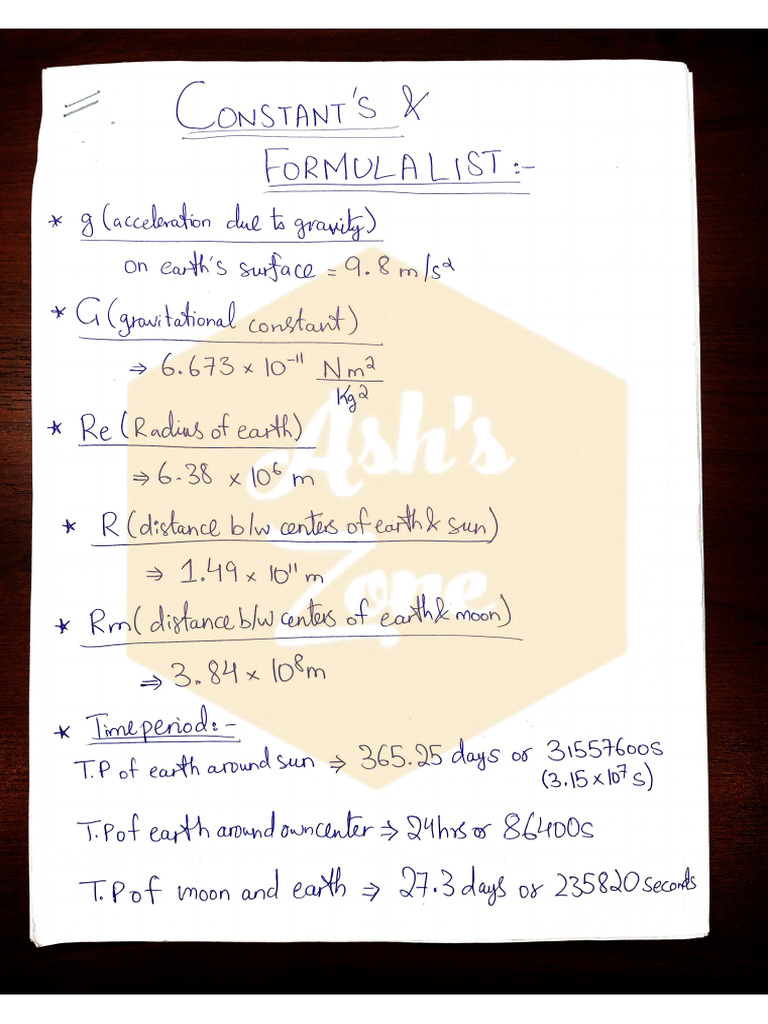 CONSTANT'S &
FORMULA LIST :-
* g (acceleration due to gravity)
on earth's surface = 9.8 m/s²
* G (gravitational constant)
⇒ 6.673 × 10⁻¹¹ Nm²/Kg²
* Re (Radius of earth)
⇒ 6.38 × 10⁶ m
* R (distance b/w centers of earth & sun)
⇒ 1.49 × 10¹¹ m
* Rm (distance b/w centers of earth & moon)
⇒ 3.84 × 10⁸ m
* Time period :-
T.P of earth around sun ⇒ 365.25 days or 31557600s
(3.15 × 10⁷ s)
T.P of earth around own center ⇒ 24hrs or 86400s
T.P of moon and earth ⇒ 27.3 days or 235820 seconds
Ash's
Zone